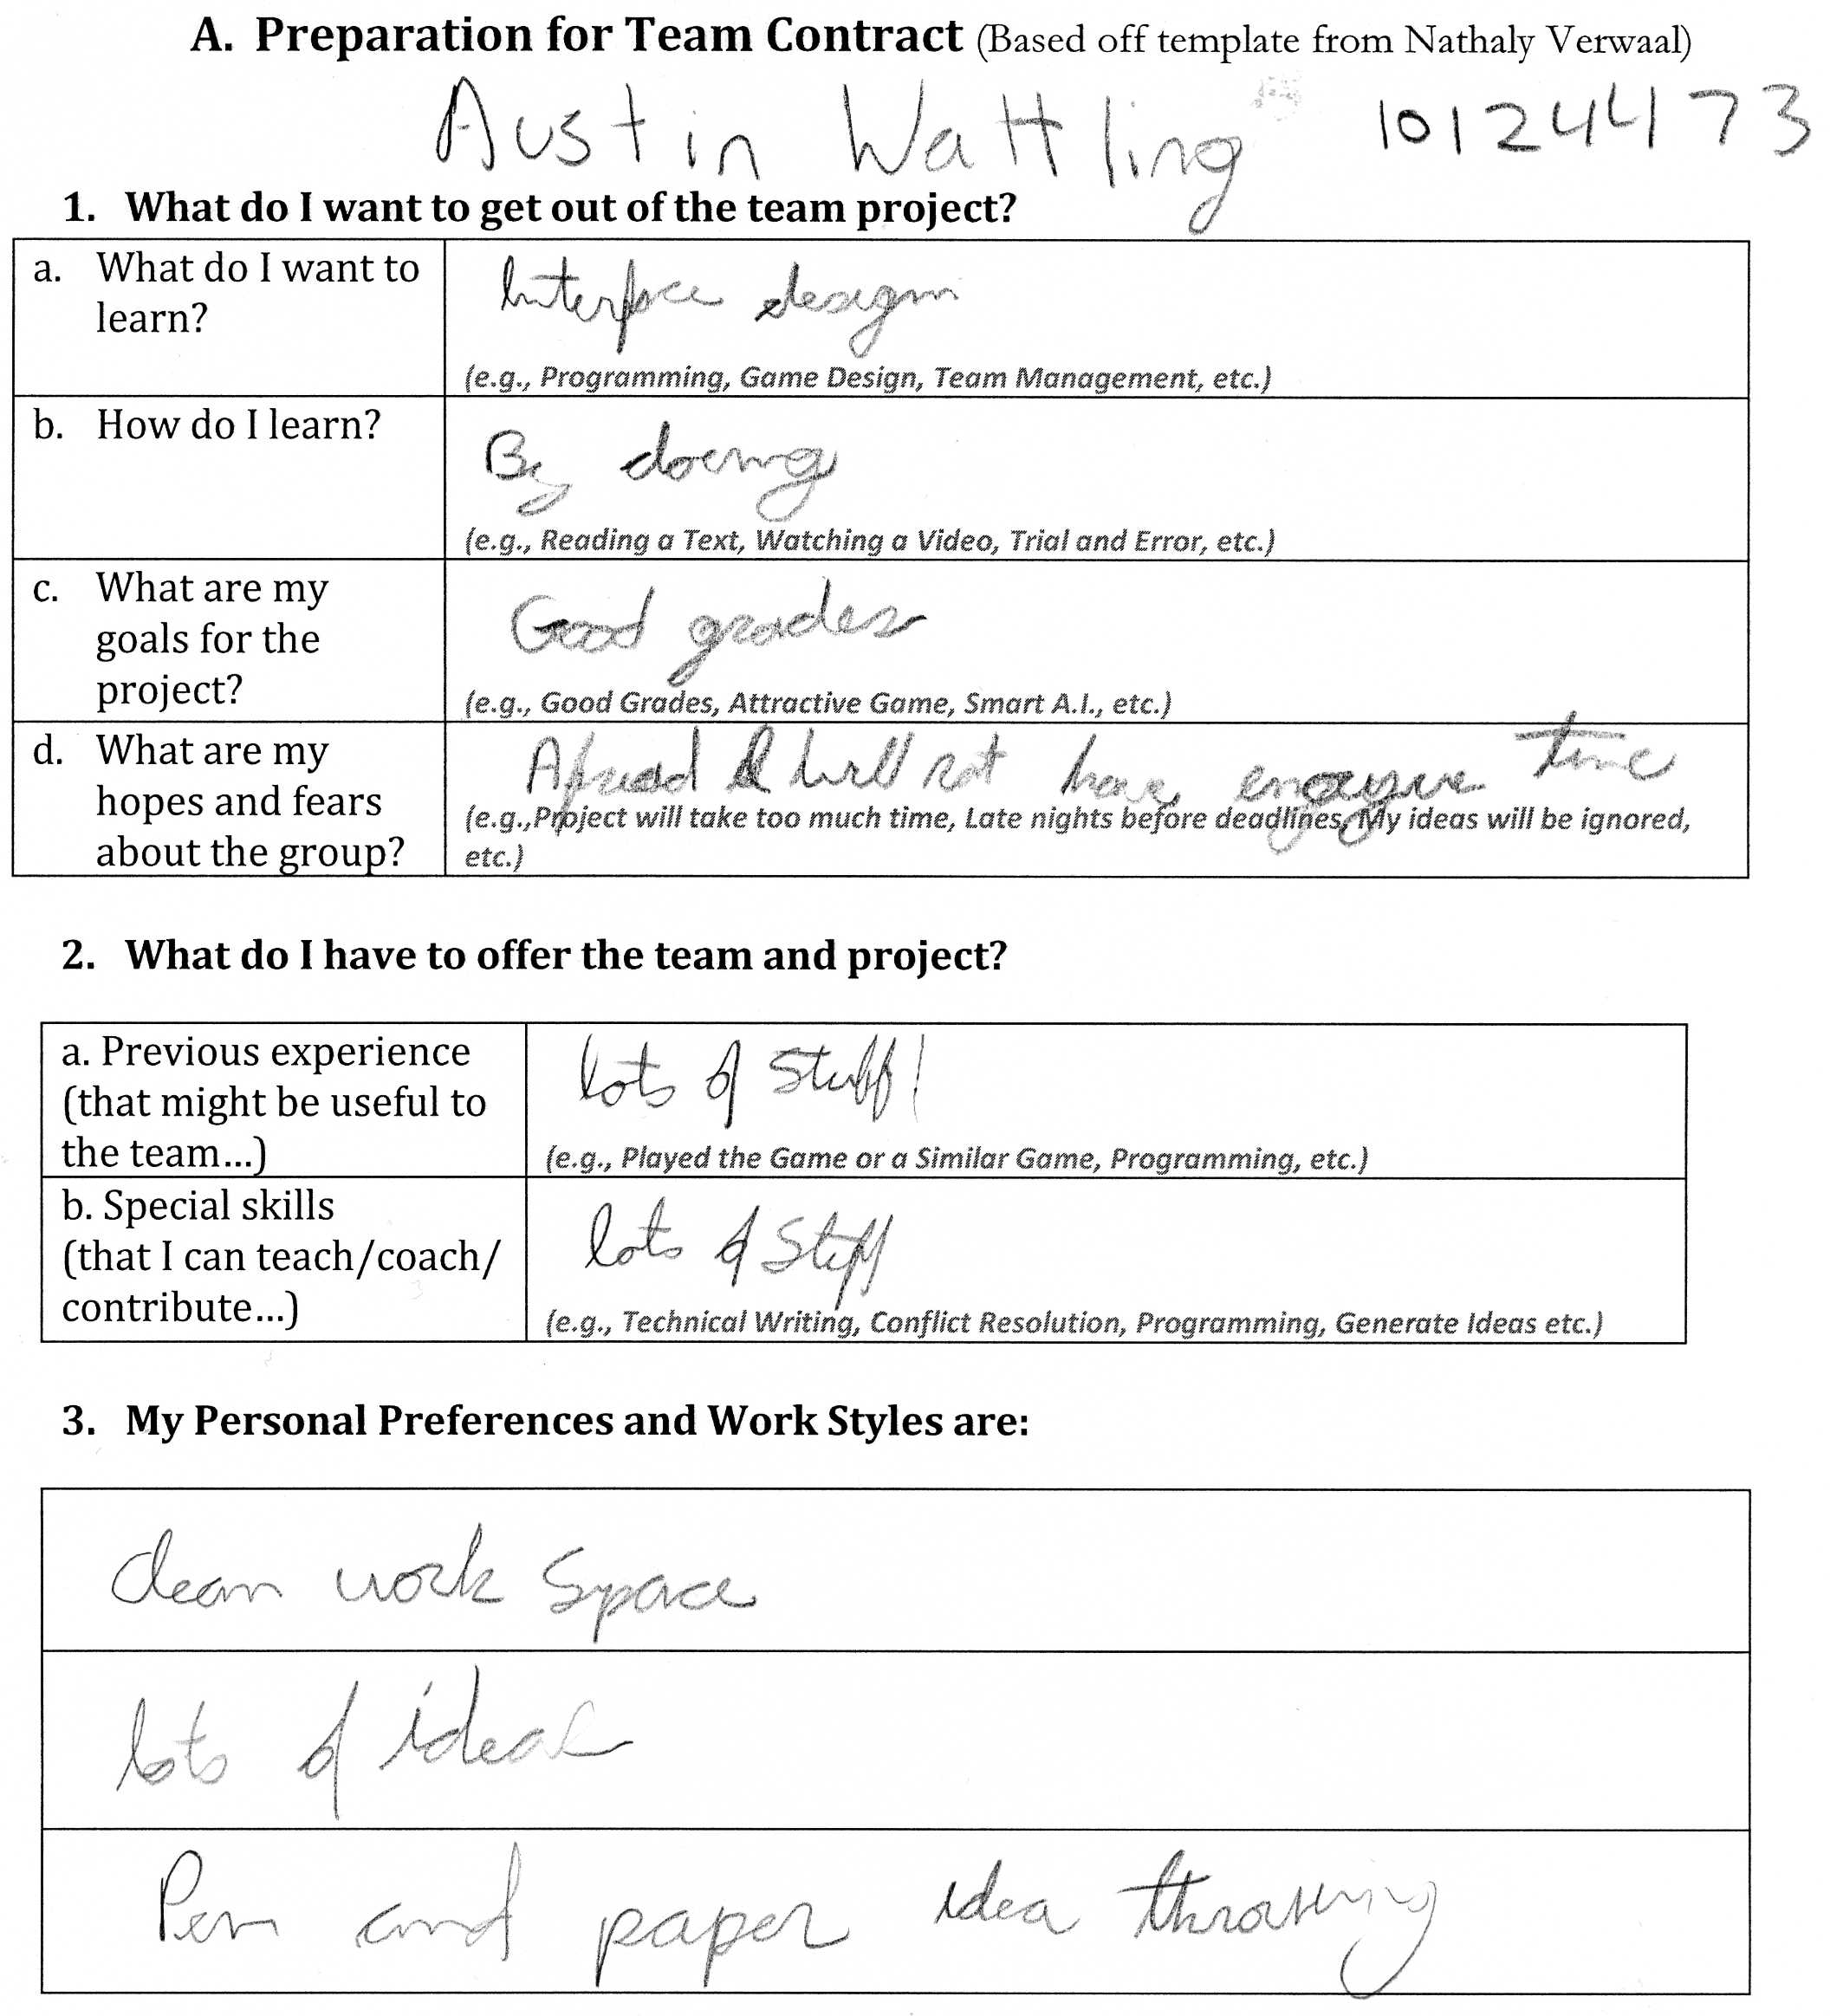 A. Preparation for Team Contract (Based off template from Nathaly Verwaal)
Austin Wattling 10124473
1. What do I want to get out of the team project?
a. What do I want to
learn?
Interface design
(e.g., Programming, Game Design, Team Management, etc.)
b. How do I learn?
By doing
(e.g., Reading a Text, Watching a Video, Trial and Error, etc.)
c. What are my
goals for the
project?
Good grades
(e.g., Good Grades, Attractive Game, Smart A.I., etc.)
d. What are my
hopes and fears
about the group?
Afraid I will not have time
(e.g.,Project will take too much time, Late nights before deadlines, My ideas will be ignored,
etc.)
2. What do I have to offer the team and project?
a. Previous experience
(that might be useful to
the team...)
lots of stuff!
(e.g., Played the Game or a Similar Game, Programming, etc.)
b. Special skills
(that I can teach/coach/
contribute...)
lots of stuff
(e.g., Technical Writing, Conflict Resolution, Programming, Generate Ideas etc.)
3. My Personal Preferences and Work Styles are:
clean work space
lots of ideas
Pen and paper idea throwing